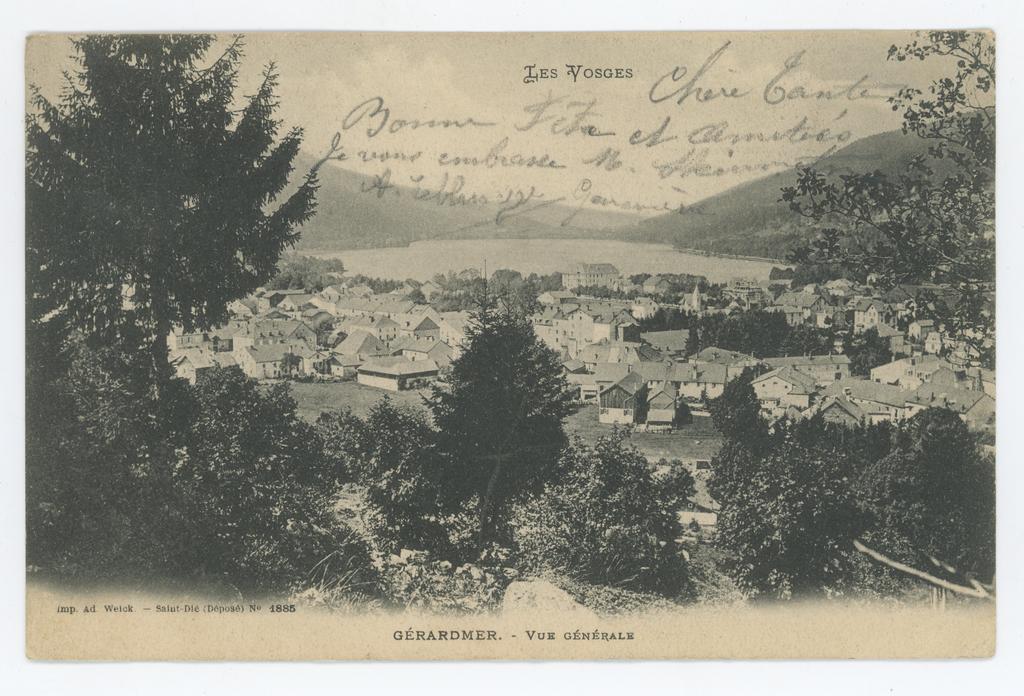 Les Vosges
Chère Tante
Bonne Fête et Amitiés
Je vous embrasse
Imp. Ad. Weick. — Saint-Dié (Déposé) Nº 1885
GÉRARDMER. - VUE GÉNÉRALE